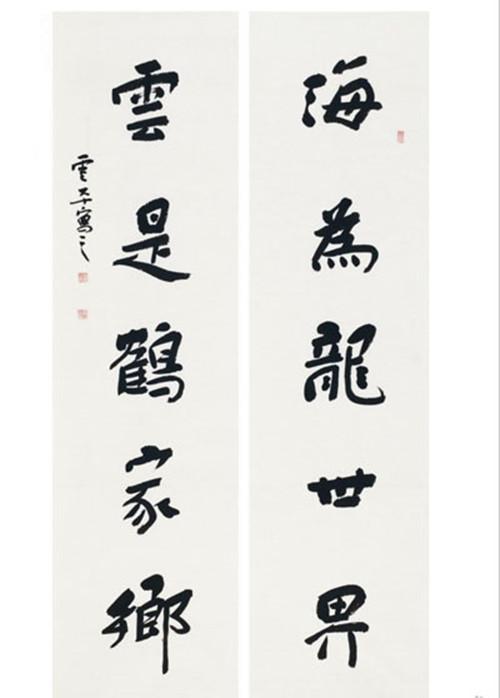 海為龍世界
雲是鶴家鄉
寫之